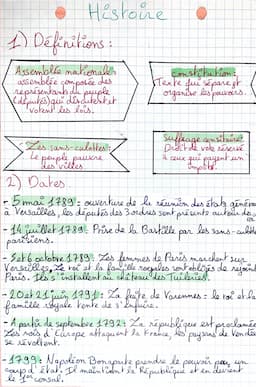 Histoire
1) Définitions :
Assemblée nationale :
assemblée composée des
représentants du peuple
(députés) qui discutent et
votent les lois.
Constitution :
Texte qui sépare et
organise les pouvoirs.
Les sans-culottes :
Le peuple pauvre
des villes.
Suffrage censitaire :
Droit de vote réservé
à ceux qui payent un
impôt.
2) Dates
- 5 mai 1789 : ouverture de la réunion des états généra
à Versailles, les députés des 3 ordres sont présents autour du
- 14 juillet 1789 : Prise de la Bastille par les sans-culott
parisiens.
- 5 et 6 octobre 1789 : Les femmes de Paris marchent sur
Versailles, Le roi et la famille royales sont obligés de rejoind
Paris. Ils s'installent au château des Tuileries.
- 20 et 21 juin 1791 : La fuite de Varennes : le roi et la
famille royale tente de s'enfuire.
- A partir de septembre 1792 : La république est proclamée
Les rois d'Europe attaquent la France, les paysans de Vendée
se révoltent.
- 1799 : Napoléon Bonaparte prendre le pouvoir par un
coup d'état. Il maintient la République et en devient
le 1er consul.